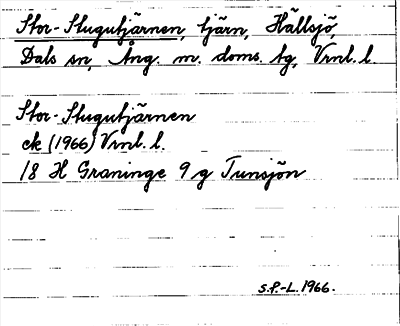 Stor-Stugutjärnen, tjärn, Hällsjö,
Dals sn, Ång. m. doms. tg, Vrnl. l.
Stor-Stugutjärnen
ek (1966) Vrnl. l.
18 H Graninge 9 g Tunsjön
S.P.-L. 1966.